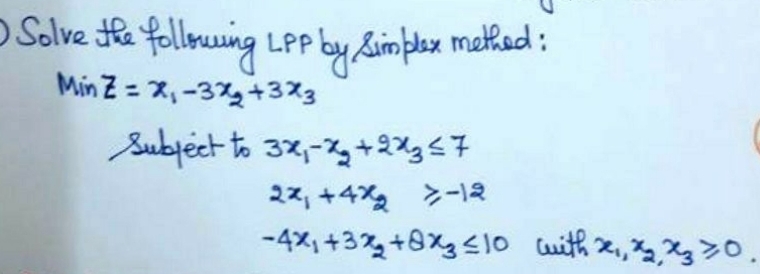 ) Solve the following LPP by Simplex method :
Min Z = x₁ - 3x₂ + 3x₃
Subject to 3x₁ - x₂ + 2x₃ ≤ 7
2x₁ + 4x₂ ≥ -12
-4x₁ + 3x₂ + 8x₃ ≤ 10 with x₁, x₂, x₃ ≥ 0.